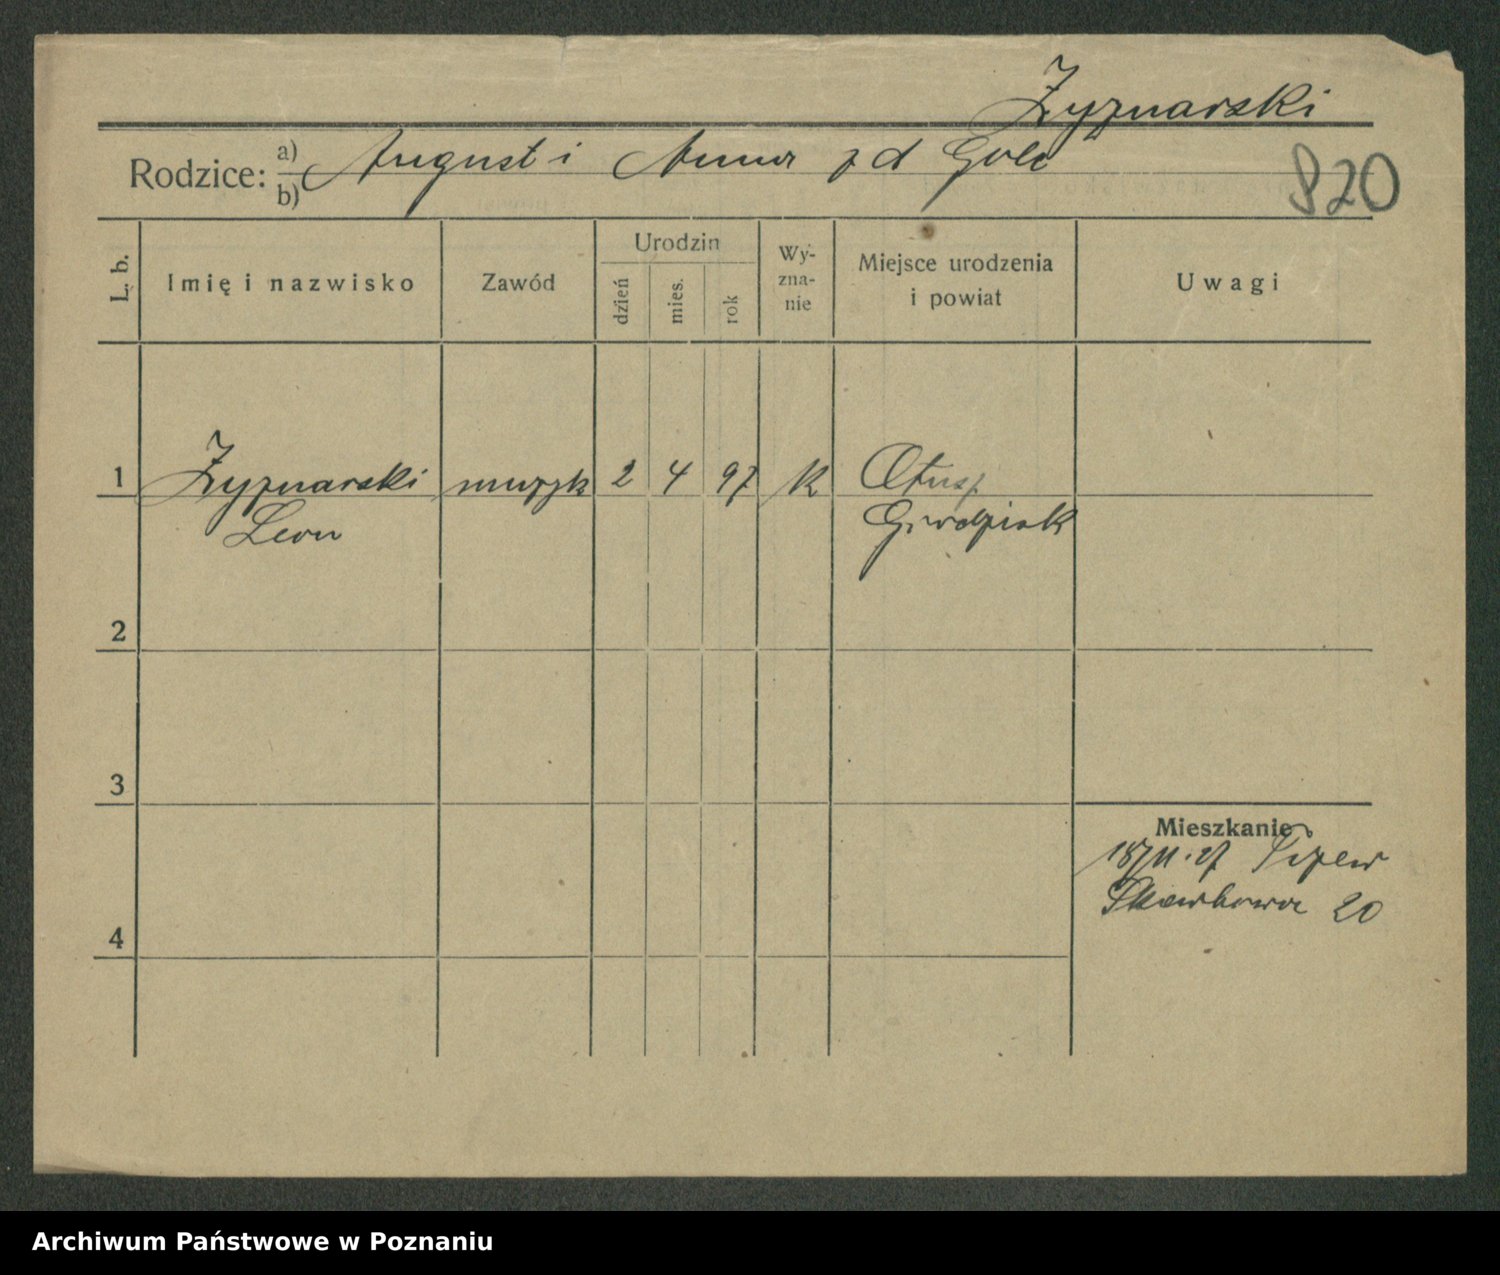 Żyznarski
Rodzice: a) August i Anna z d Golc
b)
820
L. b. Imię i nazwisko Zawód Urodzin dzień mies. rok Wyznanie Miejsce urodzenia i powiat Uwagi
1 Żyznarski muzyk 2 4 97 k Otusz
Leon Grodzisk
2
3
Mieszkanie
Tczew
Skarbowa 20
4
Archiwum Państwowe w Poznaniu